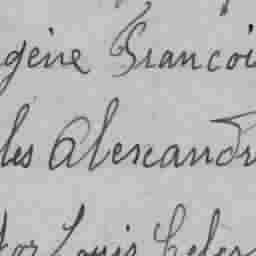 gène Francoi
les Alexandr
tor Louis Celes